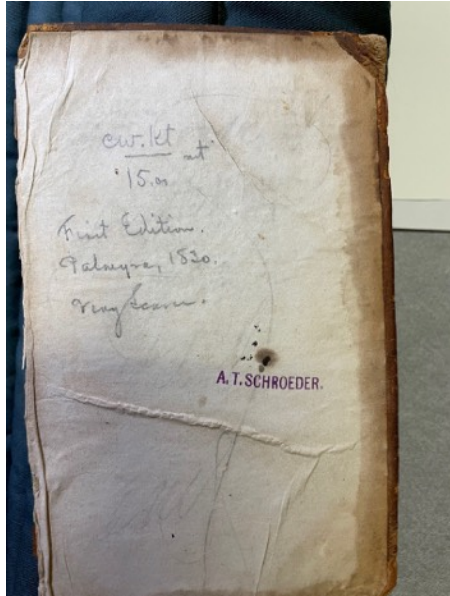 cw.kt at
15.00
First Edition.
Palmyra, 1830.
Very Scarce.
A. T. SCHROEDER.